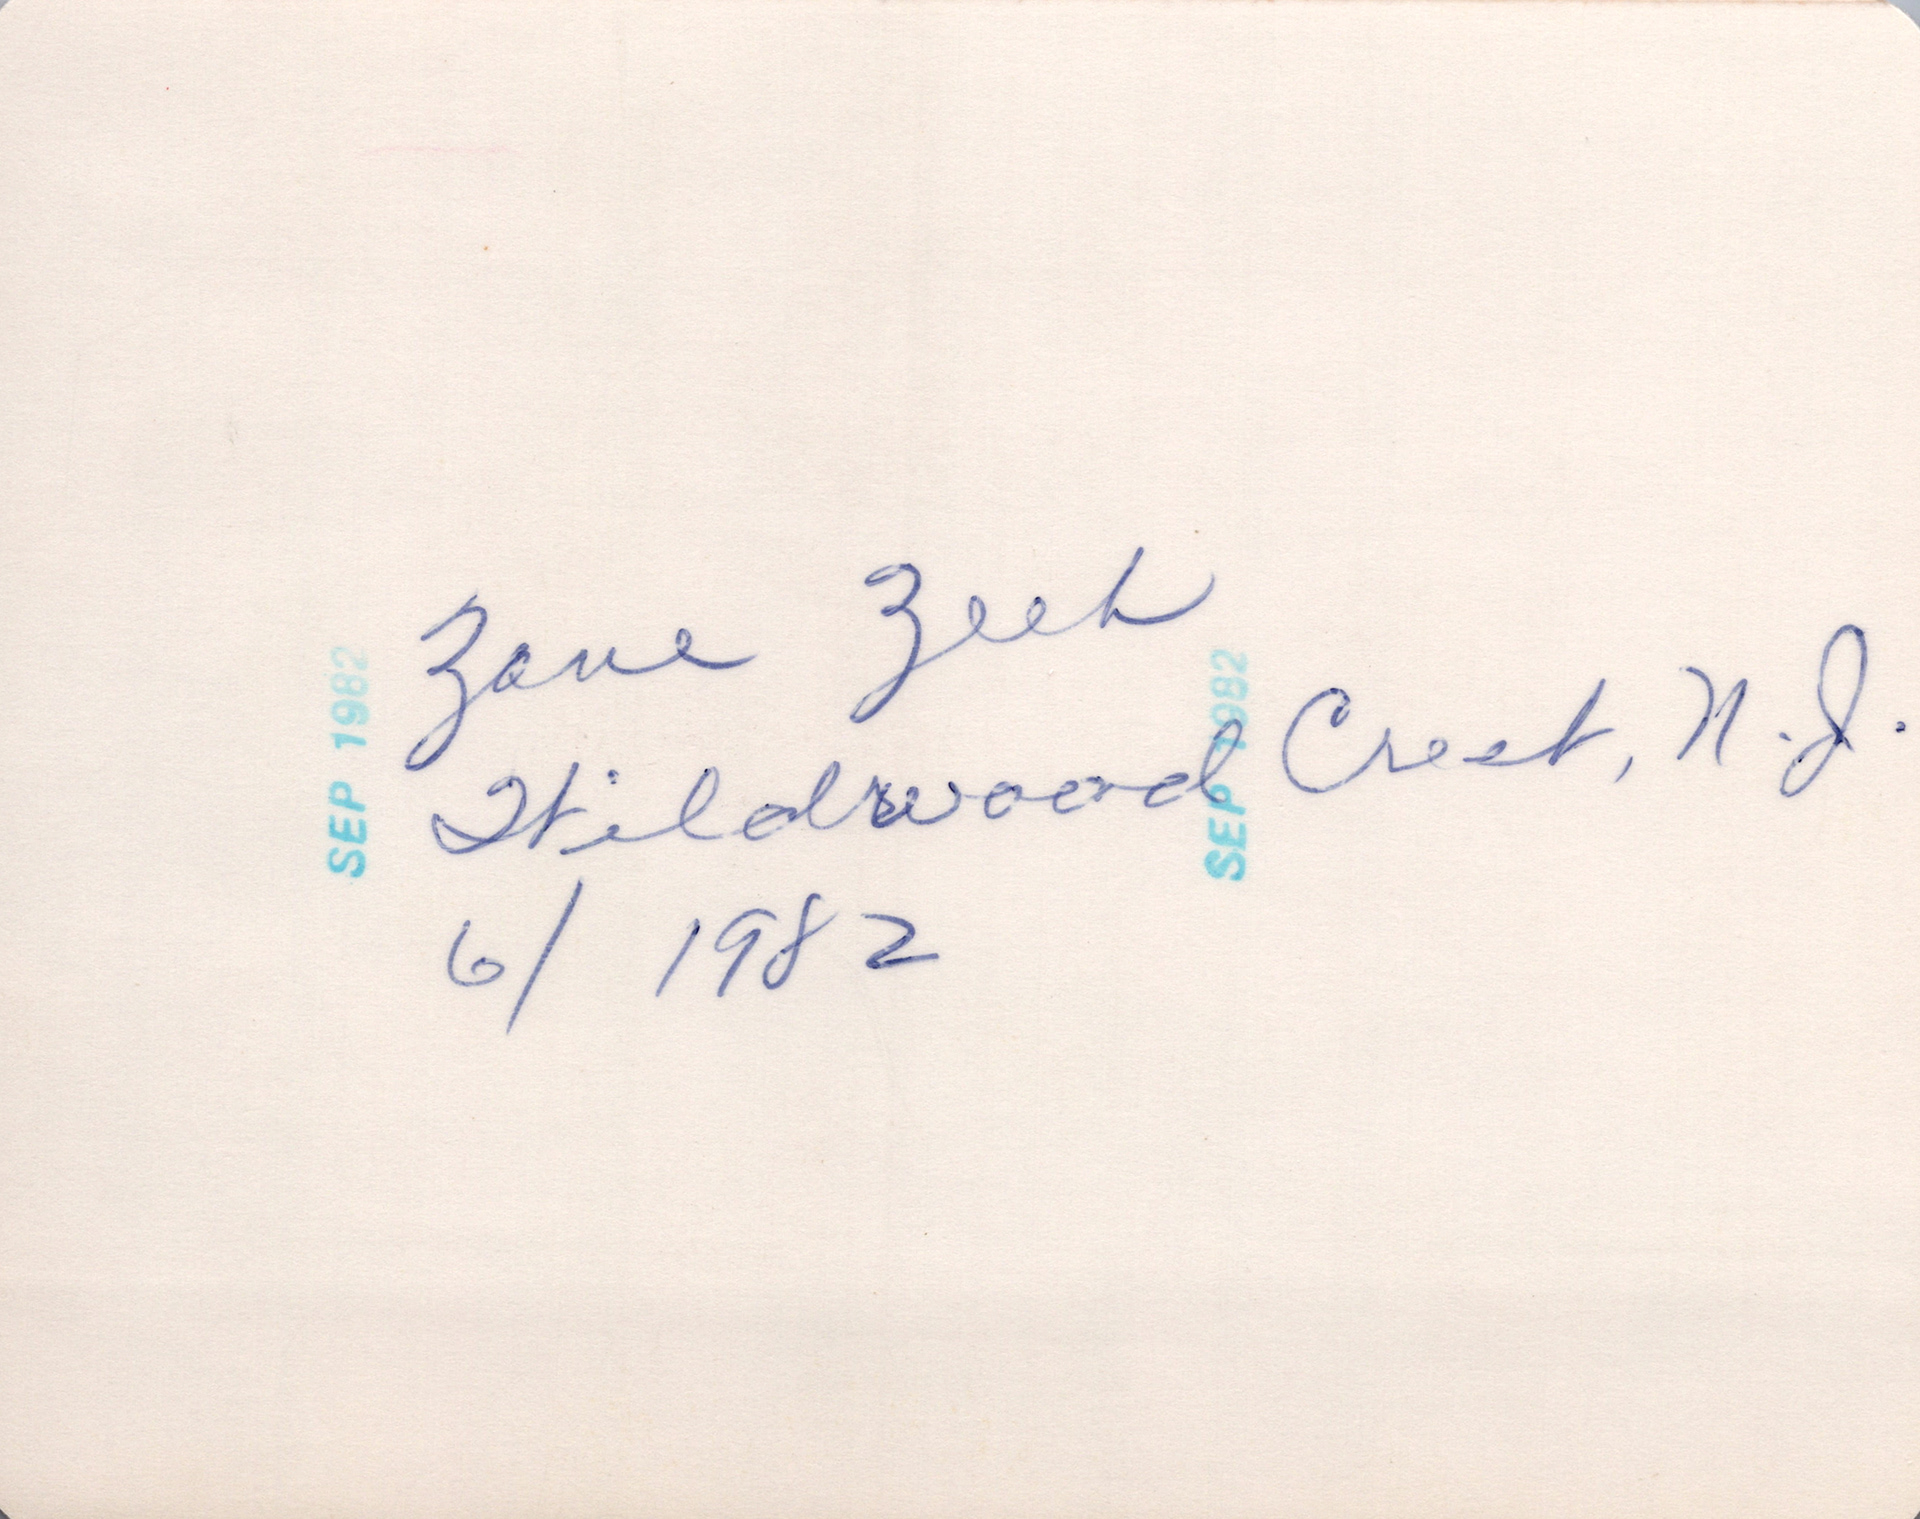 Zane
Wildwood Crest, N.J.
6/ 1982
SEP 1982
SEP 1982